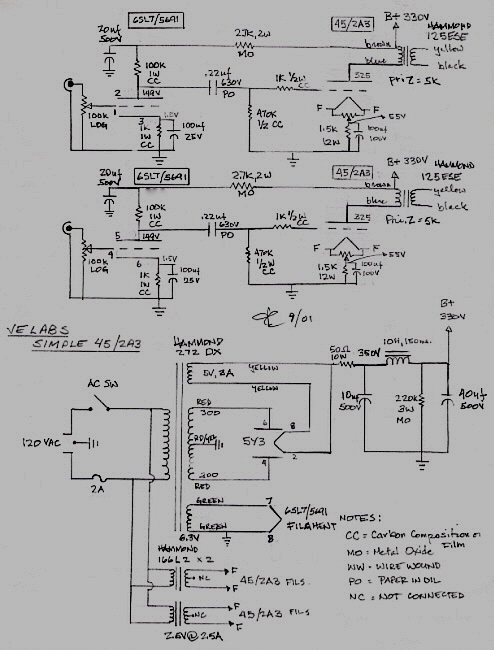 6SL7/5691
45/2A3
B+ 330V
HAMMOND
125ESE
20uf
500V
2.7K, 2W
MO
brown
yellow
blue
black
325
Pri Z = 5K
100K
1W
CC
.22uf
630V
PO
1K ½W
CC
2
148V
1
3
1.5V
100K
LOG
1K
1W
CC
100uf
25V
470K
½ CC
F
F
55V
1.5K
12W
100uf
100V
20uf
500V
6SL7/5691
2.7K, 2W
MO
45/2A3
B+ 330V
HAMMOND
125ESE
brown
yellow
blue
black
325
Pri. Z = 5K
100K
1W
CC
.22uf
630V
PO
1K ½W
CC
5
149V
4
6
1.5V
100K
LOG
1K
1W
CC
100uf
25V
470K
½W
CC
F
F
55V
1.5K
12W
100uf
100V
9/01
VE LABS
SIMPLE 45/2A3
HAMMOND
272 DX
B+
330V
50Ω
10W
350V
10H, 150ma.
YELLOW
5V, 3A
YELLOW
AC SW
RED
300
6
8
5Y3
4
2
10uf
500V
220K
3W
MO
40uf
500V
120 VAC
RED/YEL
300
RED
2A
GREEN
7
6SL7/5691
FILAMENT
GREEN
8
6.3V
HAMMOND
166L2 x 2
NC
F
F
45/2A3 FILS.
NC
F
F
45/2A3 FILS
2.5V@2.5A
NOTES:
CC = Carbon Composition or
Film
MO = Metal Oxide
WW = WIRE WOUND
PO = PAPER IN OIL
NC = NOT CONNECTED